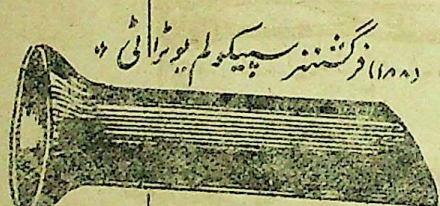 (۱۸۸) فرگشنز سپیکولم یوٹرائی "